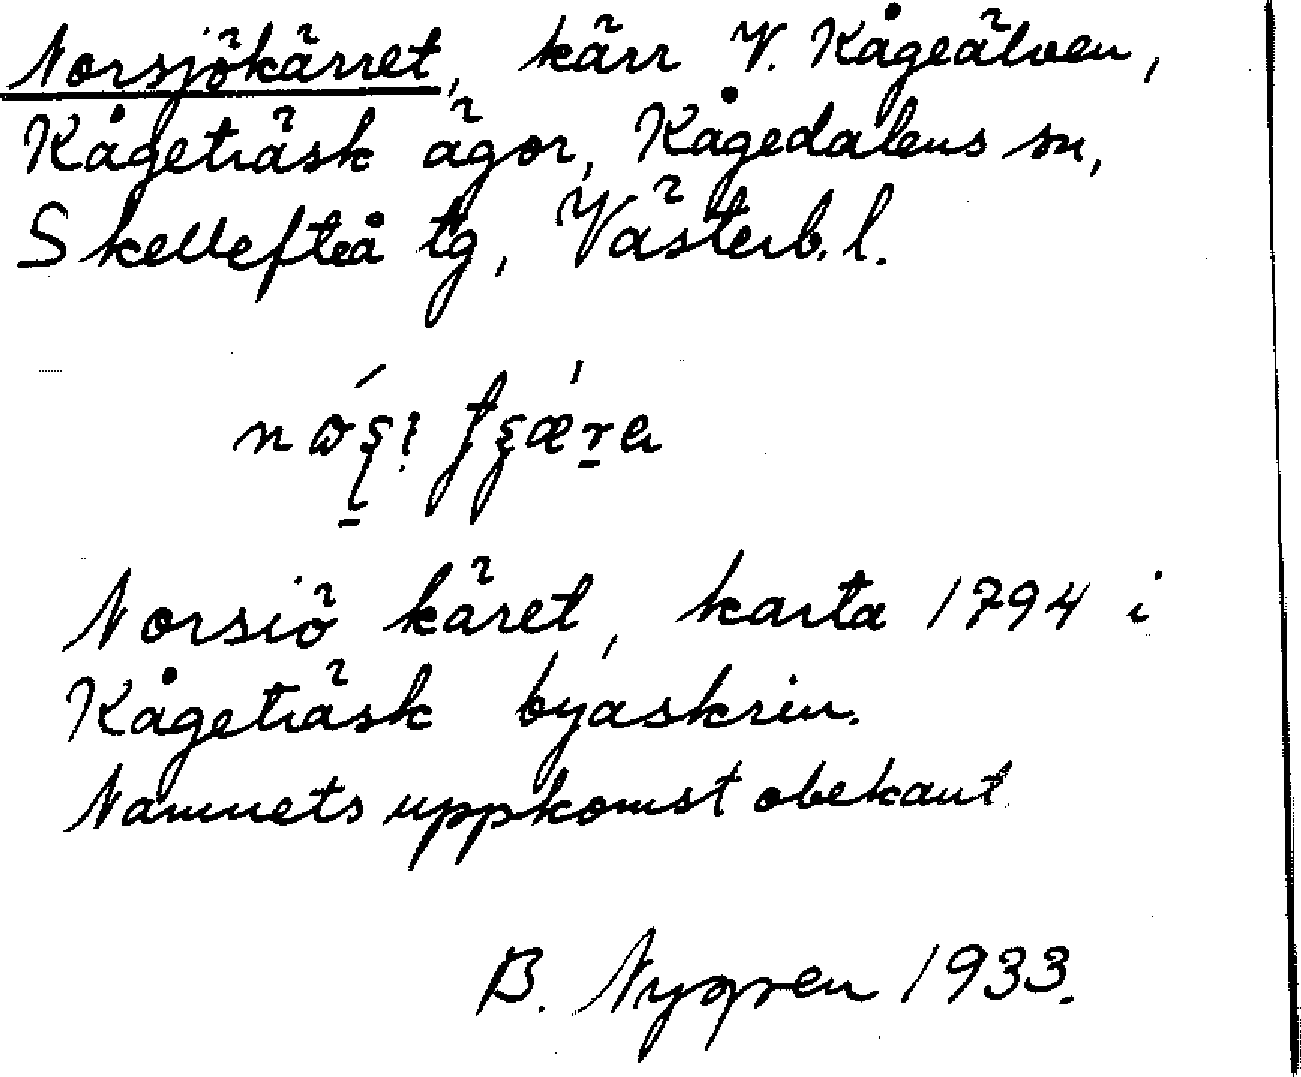 Norsjökärret, kärr V. Kågeälven,
Kågeträsk ägor, Kågedalens sn,
Skellefteå tg, Västerb. l.
Norsiö käret, karta 1794 i
Kågeträsk byaskrin.
Namnets uppkomst obekant
B. Nygren 1933.